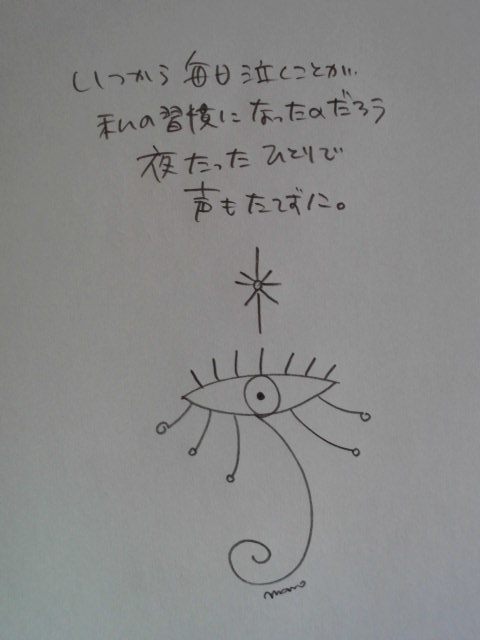 いつから毎日泣くことが、
私の習慣になったのだろう
夜たったひとりで
声もたてずに。
momo